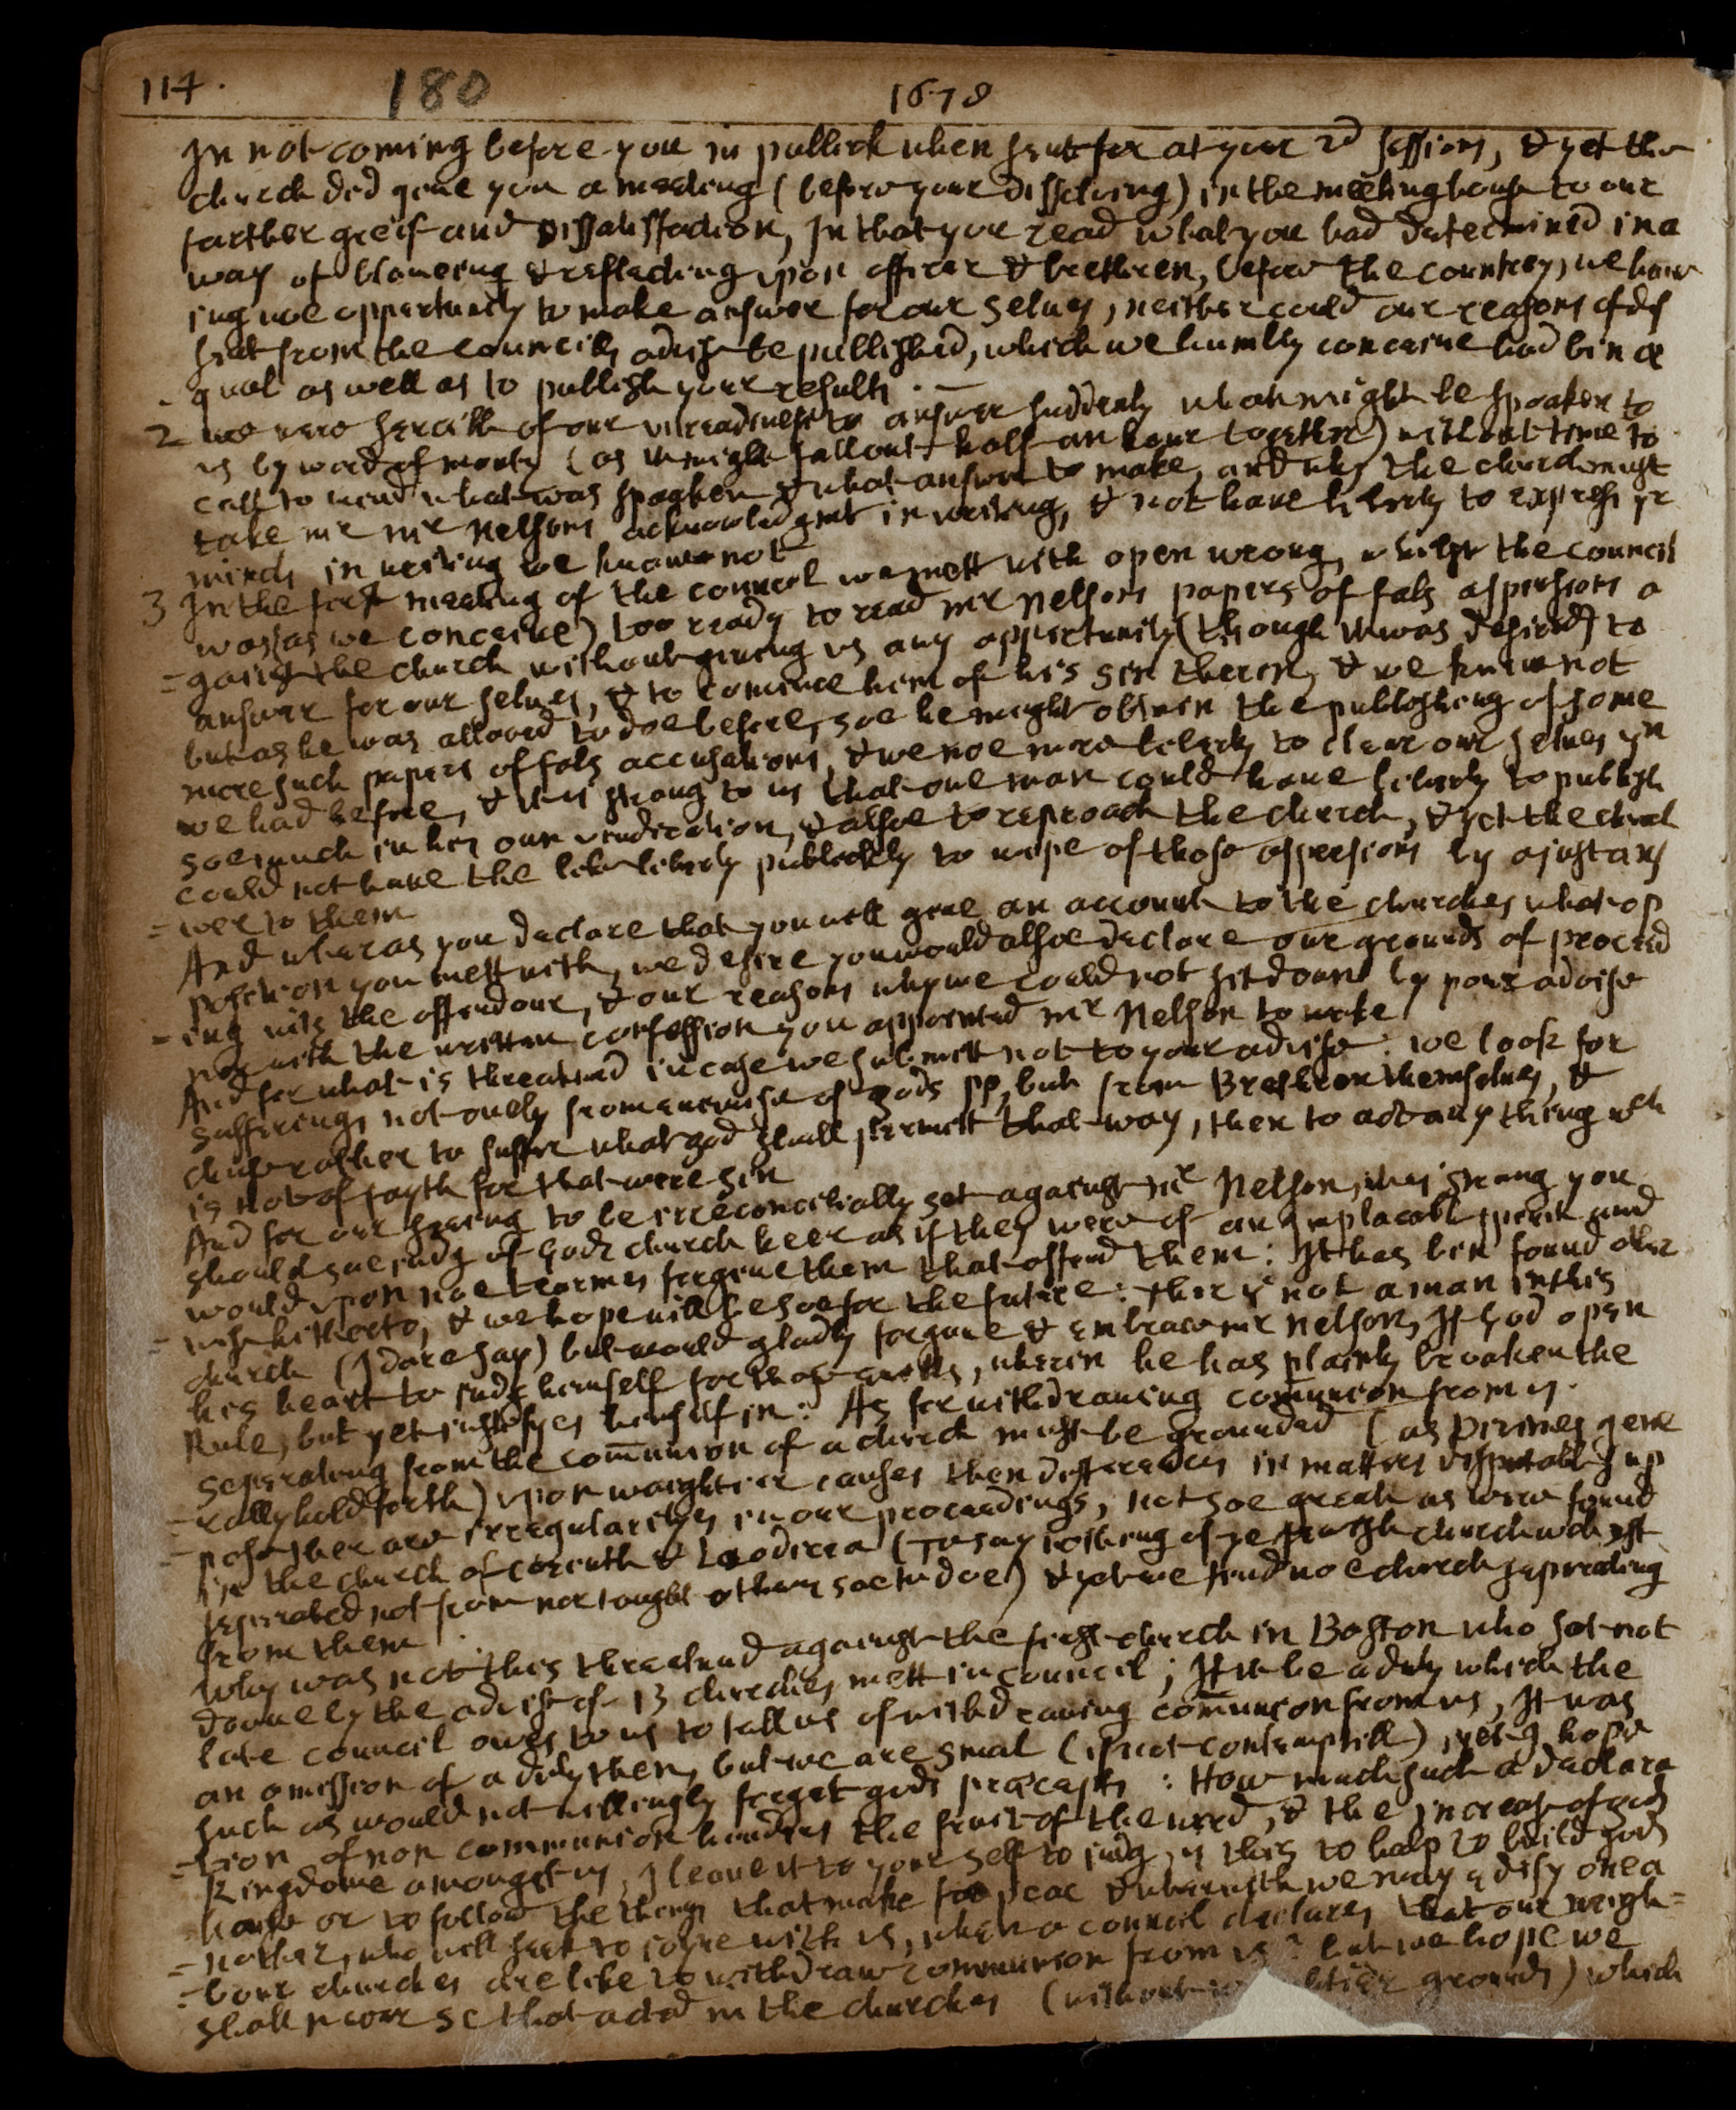 114. 180 1678
In not coming before you in publick when sent for at your 2d session, & yet the
church did geue you a meeting (before your dissoluing) in the meeting house to our
farther greif and dissatisfaction, In that you read what you had determined in a
way of blameing & reflecting vpon officer & bretheren, before the countrey, we haue
ing noe oppertunity to make answer for our selues, neither could our reasons of dis
sent from the councills aduise be published, which we humbly conceiue had bin ae
- qual as well as to publish your results . —
2 we were sencible of our vnreadinese to answer suddenly what might be spoaken to
us by word of mouth (as it might fall out half an hour together) without time to
call to mind what was spoaken & what answer to make, and why the church might
take mr mr Nelsons acknowledgmt in writing, & not haue liberty to express yr
minds in writing we know not
3 In the first meeting of the councel we mett with open wrong, whilst the council
was (as we conceiue) too ready to read mr Nelsons papers of fals aspersions a
= gainst the church without geueing us any oppertunity (though it was desired) to
answer for our selues, & to conuince him of his sin therein, & we knew not
but as he was allowed to doe before, soe he might obtain the publishing of some
more such papers of fals accusations, & we noe more liberty to clear our selues yn
we had before, & it is strang to us that one man could haue liberty to publish
soe much in his own vindication, & alsoe to reproach the church, & yet the church
could not haue the like liberty publickly to wipe of those aspersions by a just ans
= wer to them
And wheras you declare that you will geue an account to the churches what op
position you mett with, we desire you would alsoe declare our grounds of proceed
= ing with the offendour, & our reasons why we could not sit down by your aduise
nor with the written confession you appointed mr Nelson to make
And for what is threatned in case we submitt not to your aduise: we look for
sufferings not only from enemise of gods pp, but from Bretheren themselues, &
chuse rather to suffer what god shall permitt that way, then to act any thing wch
is not of fayth for that were sin
And for our seeming to be irreconcilially set against mr Nelson, it is strang you
should soe judg of gods church heer as if they were of an Implacable spirit and
would vpon noe tearmes forgeue them that offend them: It has bin found other
= wise hitherto, & we hope will be soe for the future: ther is not a man in this
church (I dare say) but would gladly forgeue & embrace mr Nelson, If God open
his heart to judg himself for those euills, wherin he has plainly broaken the
Rule, but yet justifyes himself in: As for withdrawing comunion from us.
seperating from the comunion of a church must be grounded (as Diuines gene
= rally hold forth) vpon waightier causes then differences in matters disputable, sup
= pose ther are irregularityes in our proceedings, not soe great as were found
in the church of Corinth & Laodicea (To say nothing of ye church wch
seperated not from nor taught others soe to doe) & yet we find noe church seperating
from them
why was not this threatned against the first church in Boston who sat not
down by the aduise of 13 churches mett in council; If it be a duty which the
late council owes to us to tell us of withdrawing comunion from us, It was
an omission of a duty then, but we are smal (if not contemptible) yet I hope
such as would not willingly forget gods precepts: How much such a declara
= tion of non communion hinders the fruit of the word, & the increase of gods
kingdome amongst us, I leaue it to your self to judg, is this to help to build gods
house or to follow the things that make for peac & wherwith we may edify one a
= nother, who will seek to joyne with us, when a council declares that our neigh=
= bour churches are like to withdraw communion from us? but we hope we
shall neuer se that acted in the churches (without grounds) which